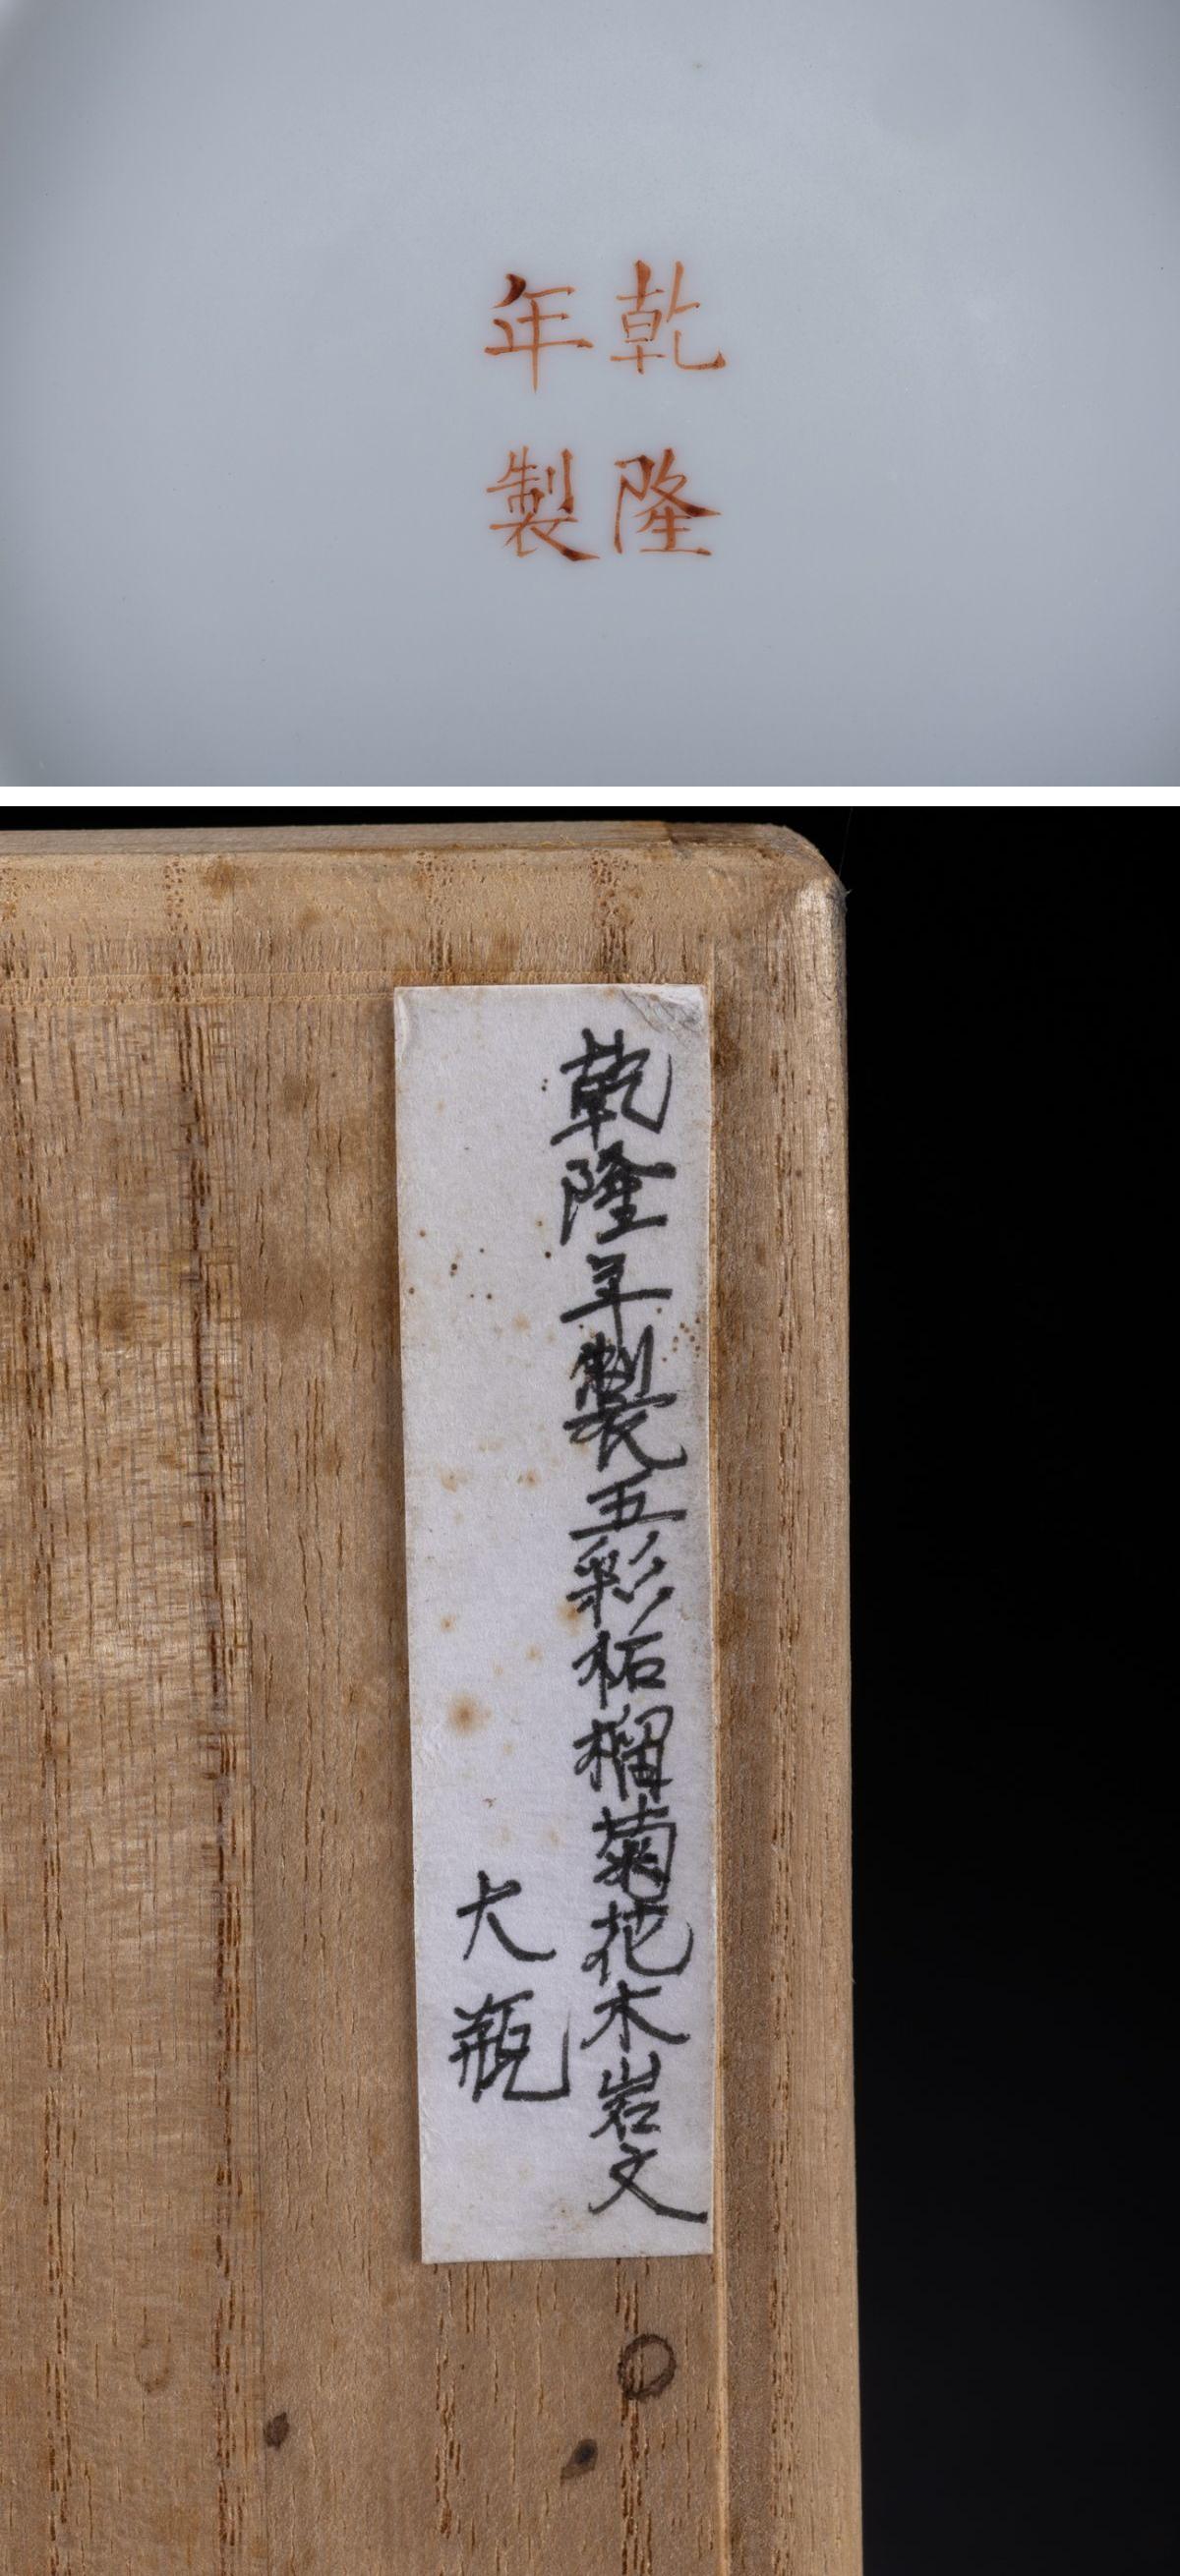 乾隆
年製
乾隆年製五彩柘榴菊花木岩文
大瓶